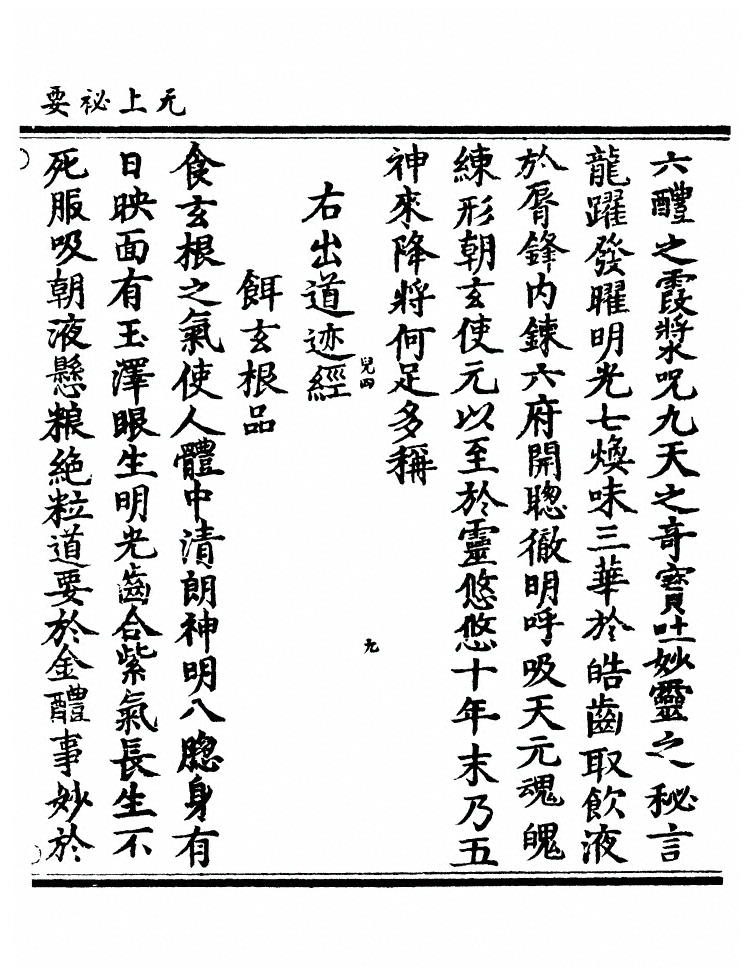 无上祕要
六醴之霞漿呪九天之奇寶吐妙靈之秘言
龍躍發曜明光七煥味三華於皓齒取飲液
於脣鋒內鍊六府開聰徹明呼吸天元魂魄
練形朝玄使元以至於靈悠悠十年末乃五
神來降將何足多稱
右出道迹經
兒四
九
餌玄根品
食玄根之氣使人體中清朗神明八聰身有
日映面有玉澤眼生明光齒合紫氣長生不
死服吸朝液懸粮絕粒道要於金醴事妙於